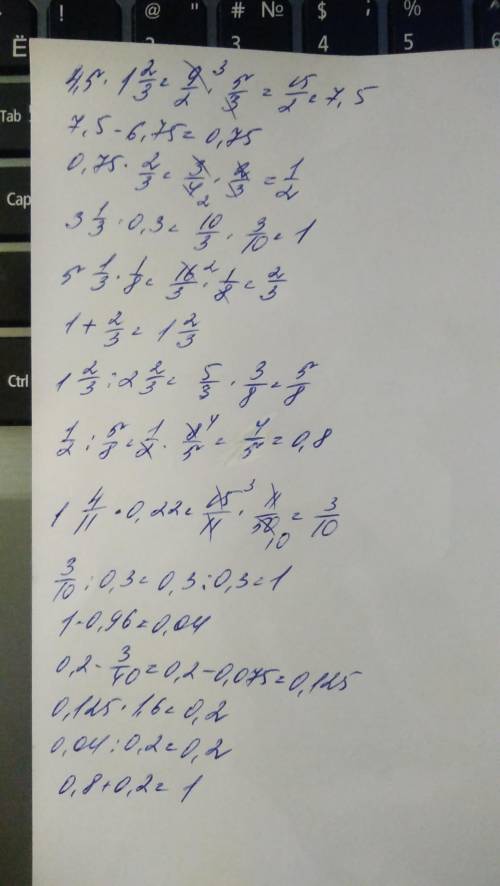 ! @ " # № $ ; % :
Ё 2 3 4 5 6
Tab
Cap
Ctrl
4,5 · 1 2/3 = 9/2 · 5/3 = 15/2 = 7,5
7,5 - 6,75 = 0,75
0,75 · 2/3 = 3/4 · 2/3 = 1/2
3 1/3 · 0,3 = 10/3 · 3/10 = 1
5 1/3 · 1/8 = 16/3 · 1/8 = 2/3
1 + 2/3 = 1 2/3
1 2/3 : 2 2/3 = 5/3 · 3/8 = 5/8
1/2 : 5/8 = 1/2 · 8/5 = 4/5 = 0,8
1 4/11 · 0,22 = 15/11 · 11/50 = 3/10
3/10 : 0,3 = 0,3 : 0,3 = 1
1 - 0,96 = 0,04
0,2 - 3/40 = 0,2 - 0,075 = 0,125
0,125 · 1,6 = 0,2
0,04 : 0,2 = 0,2
0,8 + 0,2 = 1